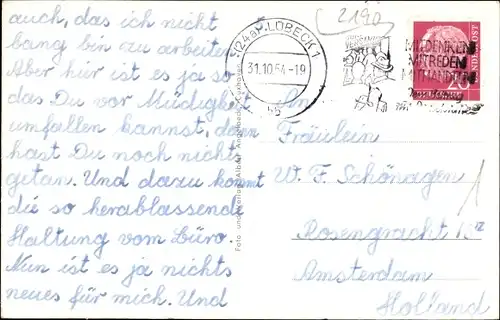 auch, das ich nicht
bang bin zu arbeiten
Aber hier ist es ja so
das Du vor Müdigkeit
umfallen kannst, dann
hast Du noch nichts
getan. Und dazu kommt
die so herablassende
Haltung vom Büro
Nun ist es ja nichts
neues für mich. Und
2190
LÜBECK 1
31.10.54.-19
MITDENKEN
MITREDEN
MITHANDELN
BUNDESPOST
20
An
Fräulein
W. F. Schönagen
Rosengracht
Amsterdam
Holland